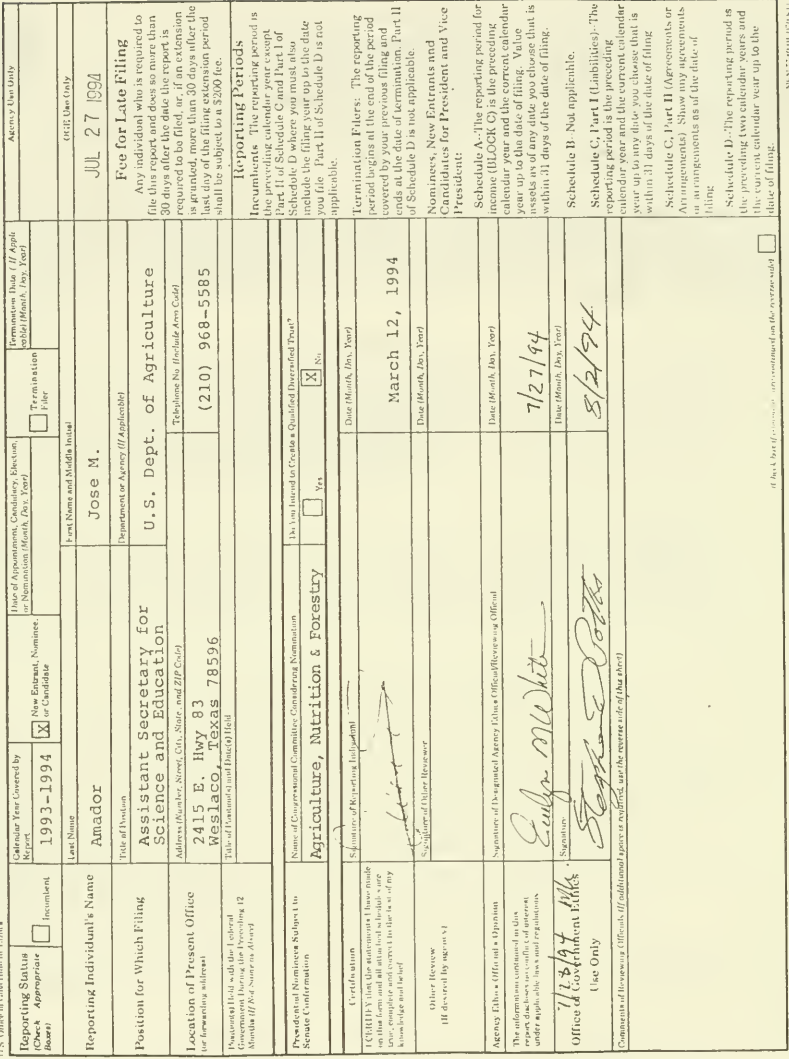 Reporting Status
(Check Appropriate Boxes)
Incumbent
Calendar Year Covered by Report
1993-1994
X New Entrant, Nominee, or Candidate
Date of Appointment, Candidacy, Election, or Nomination (Month, Day, Year)
Termination Filer
Termination Date (If Applicable) (Month, Day, Year)
Agency Use Only
Reporting Individual's Name
Last Name
Amador
First Name and Middle Initial
Jose M.
OGE Use Only
JUL 27 1994
Position for Which Filing
Title of Position
Assistant Secretary for
Science and Education
Department or Agency (If Applicable)
U.S. Dept. of Agriculture
Location of Present Office
(or forwarding address)
Address (Number, Street, City, State, and ZIP Code)
2415 E. Hwy 83
Weslaco, Texas 78596
Telephone No. (Include Area Code)
(210) 968-5585
Position(s) Held with the Federal
Government During the Preceding 12
Months (If Not Same as Above)
Title of Position(s) and Date(s) Held
Presidential Nominees Subject to
Senate Confirmation
Name of Congressional Committee Considering Nomination
Agriculture, Nutrition & Forestry
Do You Intend to Create a Qualified Diversified Trust?
Yes
X No
Certification
I CERTIFY that the statements I have made
on this form and all attached schedules are
true, complete and correct to the best of my
knowledge and belief
Signature of Reporting Individual
Date (Month, Day, Year)
March 12, 1994
Other Review
(If desired by agency)
Signature of Other Reviewer
Date (Month, Day, Year)
Agency Ethics Official's Opinion
The information contained in this
report discloses no conflict of interest
under applicable laws and regulations
Signature of Designated Agency Ethics Official/Reviewing Official
Evelyn M White
Date (Month, Day, Year)
7/27/94
7/28/94
Office of Government Ethics
Use Only
Signature
Stephen D Potts
Date (Month, Day, Year)
8/2/94
Comments of Reviewing Officials (If additional space is required, use the reverse side of this sheet)
Fee for Late Filing
Any individual who is required to
file this report and does so more than
30 days after the date the report is
required to be filed, or, if an extension
is granted, more than 30 days after the
last day of the filing extension period
shall be subject to a $200 fee.
Reporting Periods
Incumbents The reporting period is
the preceding calendar year except
Part II of Schedule C and Part I of
Schedule D where you must also
include the filing year up to the date
you file Part II of Schedule D is not
applicable.
Termination Filers: The reporting
period begins at the end of the period
covered by your previous filing and
ends at the date of termination. Part II
of Schedule D is not applicable.
Nominees, New Entrants and
Candidates for President and Vice
President:
Schedule A--The reporting period for
income (BLOCK C) is the preceding
calendar year and the current calendar
year up to the date of filing. Value
assets as of any date you choose that is
within 31 days of the date of filing.
Schedule B Not applicable.
Schedule C, Part I (Liabilities)--The
reporting period is the preceding
calendar year and the current calendar
year up to any date you choose that is
within 31 days of the date of filing
Schedule C, Part II (Agreements or
Arrangements) Show any agreements
or arrangements as of the date of
filing
Schedule D--The reporting period is
the preceding two calendar years and
the current calendar year up to the
date of filing.